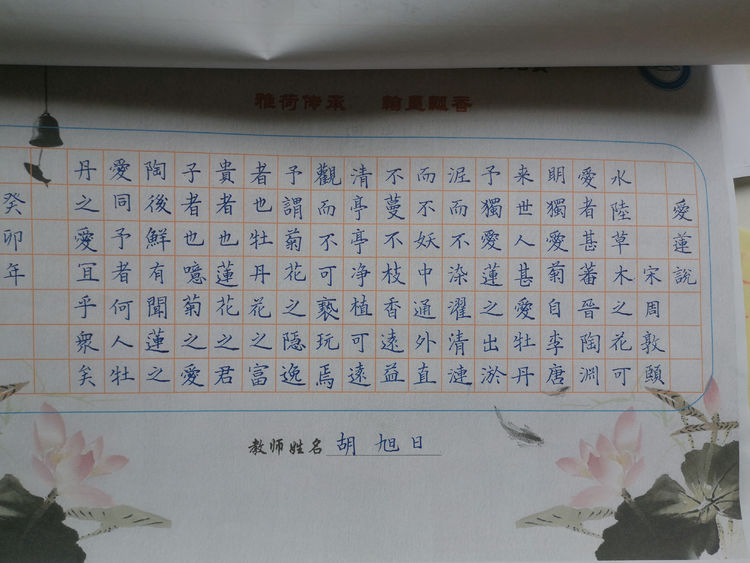 雅荷传承 翰墨飘香
愛蓮說
宋周敦頤
水陸草木之花可
愛者甚蕃晉陶淵
明獨愛菊自李唐
来世人甚愛牡丹
予獨愛蓮之出淤
泥而不染濯清漣
而不妖中通外直
不蔓不枝香遠益
清亭亭净植可遠
觀而不可褻玩焉
予謂菊花之隱逸
者也牡丹花之富
貴者也蓮花之君
子者也噫菊之愛
陶後鮮有聞蓮之
愛同予者何人牡
丹之愛冝乎衆矣
癸卯年
教师姓名 胡旭日